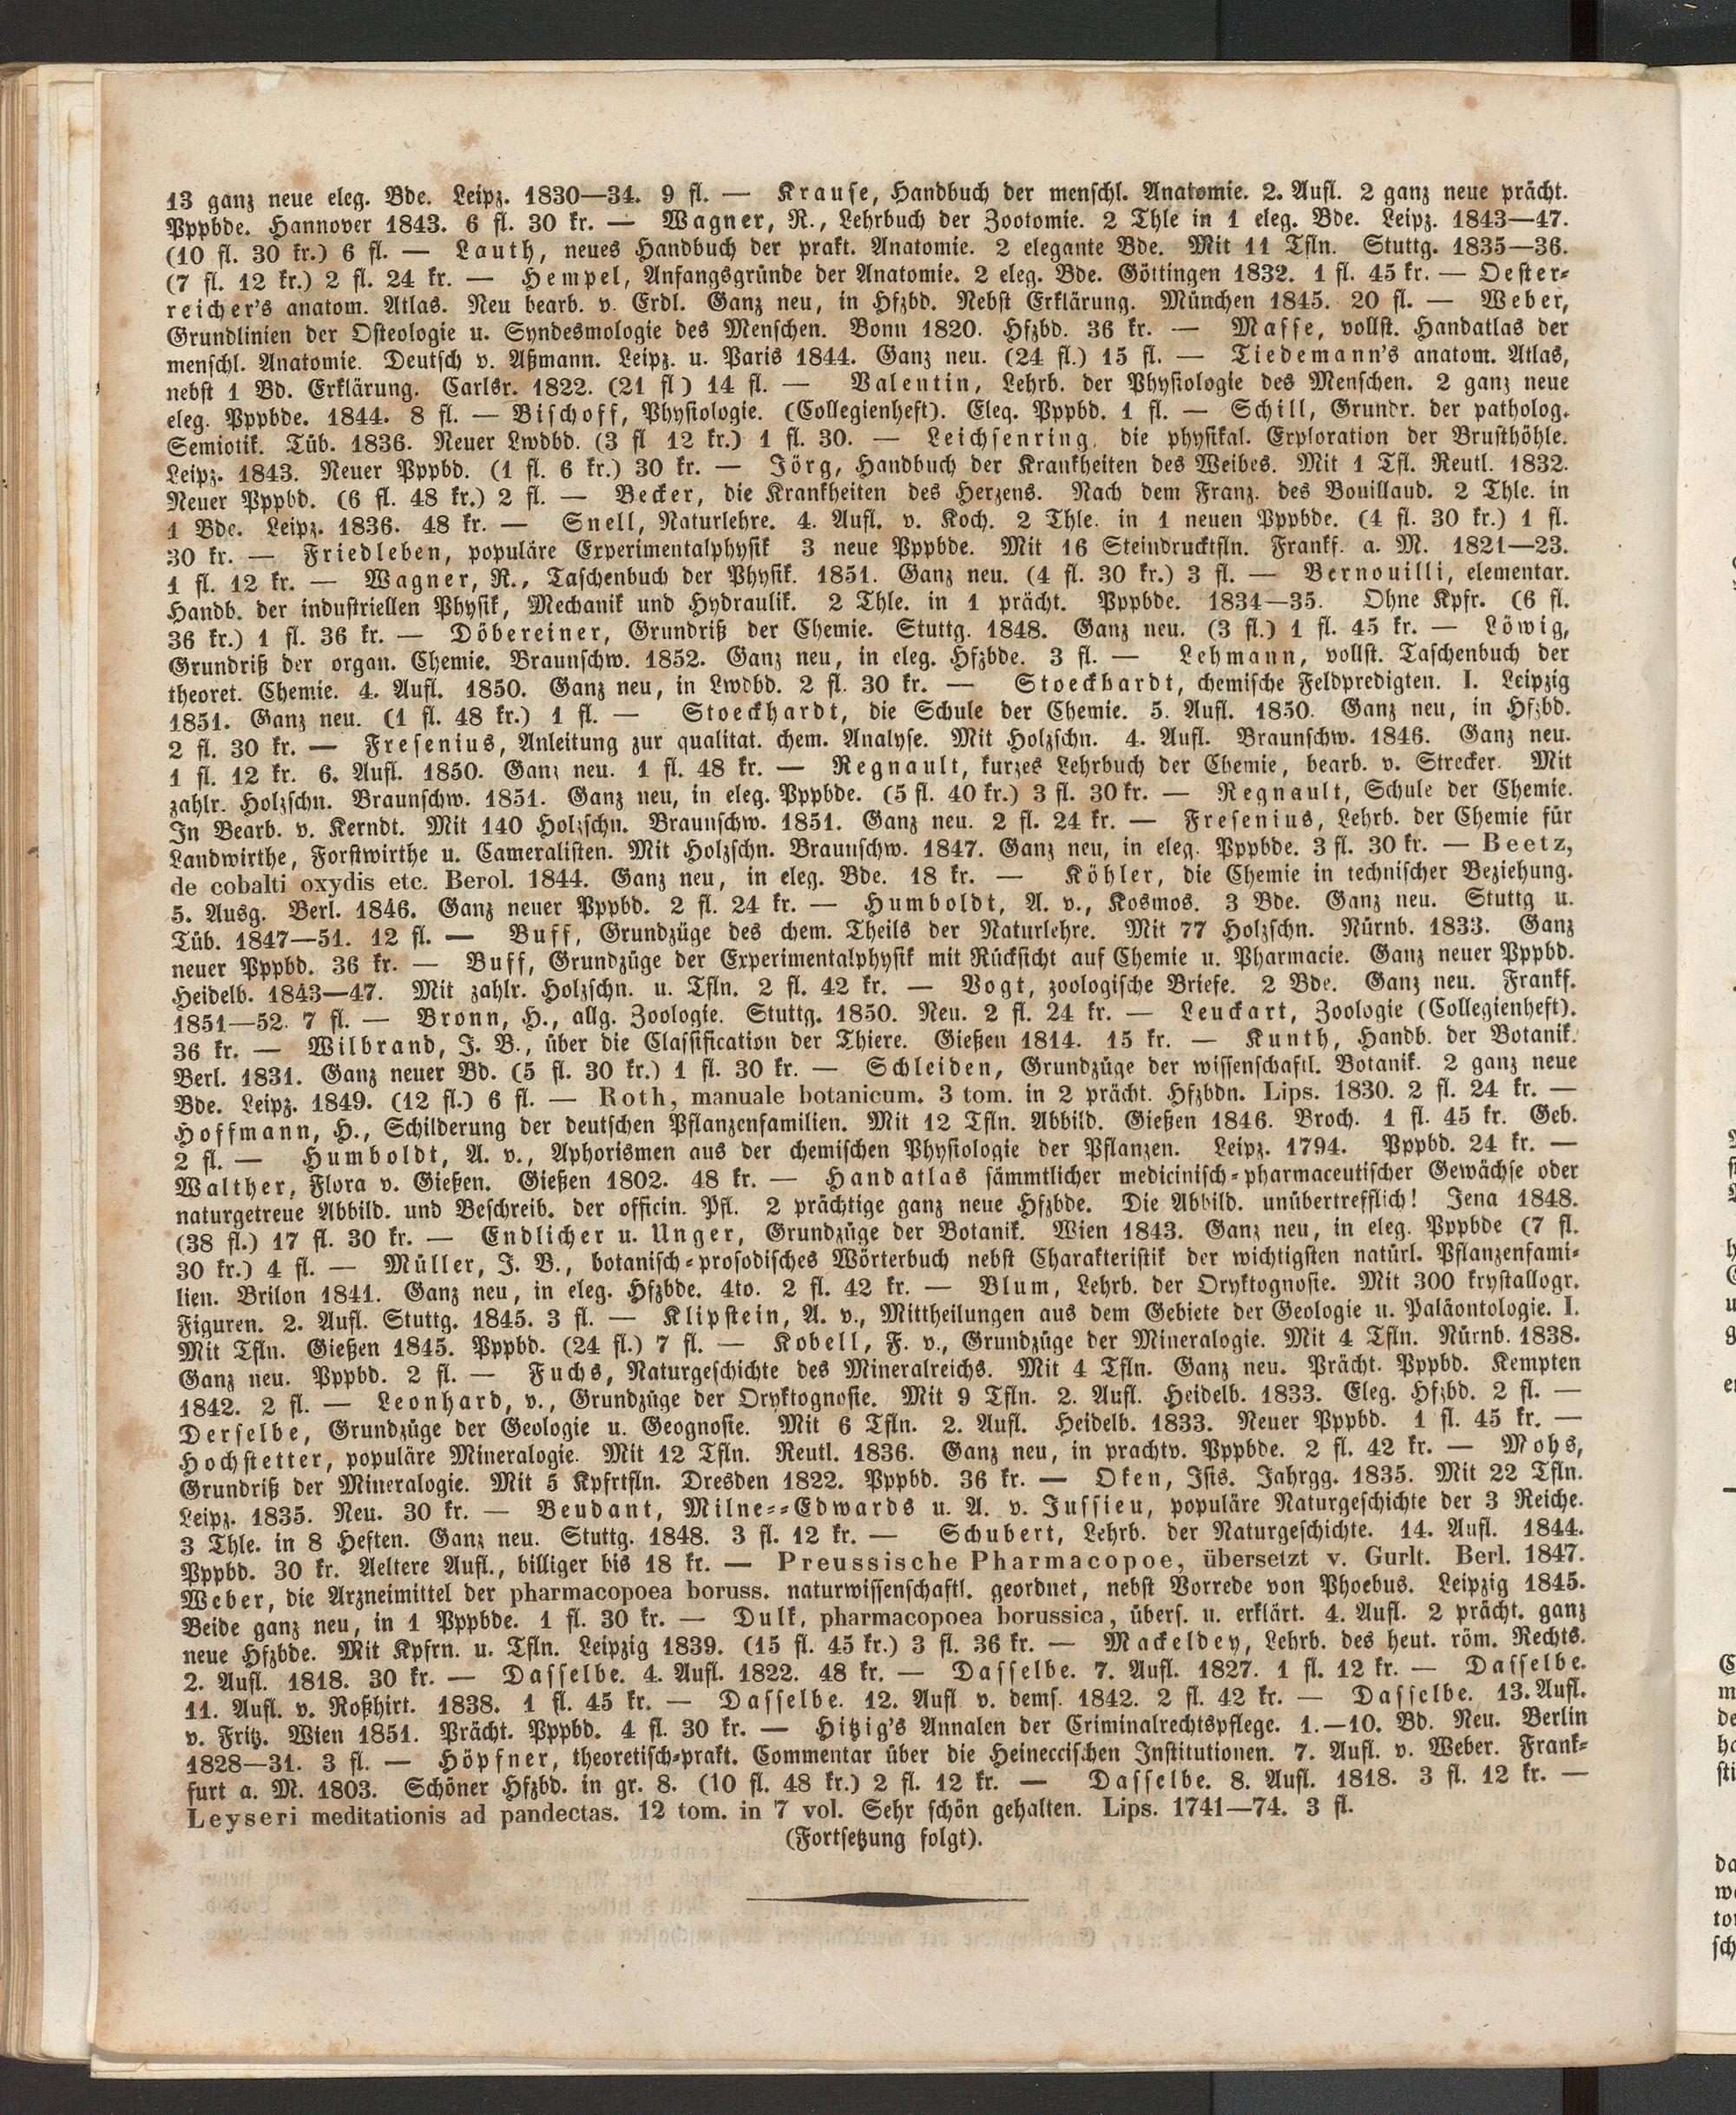 13 ganz neue eleg. Bde. Leipz. 1830—34. 9 fl. — Krause, Handbuch der menschl. Anatomie. 2. Aufl. 2 ganz neue prächt.
Pppbde. Hannover 1843. 6 fl. 30 kr. — Wagner, R., Lehrbuch der Zootomie. 2 Thle in 1 eleg. Bde. Leipz. 1843—47.
(10 fl. 30 kr.) 6 fl. — Lauth, neues Handbuch der prakt. Anatomie. 2 elegante Bde. Mit 11 Tfln. Stuttg. 1835—36.
(7 fl. 12 kr.) 2 fl. 24 kr. — Hempel, Anfangsgründe der Anatomie. 2 eleg. Bde. Göttingen 1832. 1 fl. 45 kr. — Oester-
reicher's anatom. Atlas. Neu bearb. v. Erdl. Ganz neu, in Hfzbd. Nebst Erklärung. München 1845. 20 fl. — Weber,
Grundlinien der Osteologie u. Syndesmologie des Menschen. Bonn 1820. Hfzbd. 36 kr. — Masse, vollst. Handatlas der
menschl. Anatomie. Deutsch v. Aßmann. Leipz. u. Paris 1844. Ganz neu. (24 fl.) 15 fl. — Tiedemann's anatom. Atlas,
nebst 1 Bd. Erklärung. Carlsr. 1822. (21 fl.) 14 fl. — Valentin, Lehrb. der Physiologie des Menschen. 2 ganz neue
eleg. Pppbde. 1844. 8 fl. — Bischoff, Physiologie. (Collegienheft). Eleg. Pppbd. 1 fl. — Schill, Grundr. der patholog.
Semiotik. Tüb. 1836. Neuer Lwdbd. (3 fl 12 kr.) 1 fl. 30. — Leichsenring, die physikal. Exploration der Brusthöhle.
Leipz. 1843. Neuer Pppbd. (1 fl. 6 kr.) 30 kr. — Jörg, Handbuch der Krankheiten des Weibes. Mit 1 Tfl. Reutl. 1832.
Neuer Pppbd. (6 fl. 48 kr.) 2 fl. — Becker, die Krankheiten des Herzens. Nach dem Franz. des Bouillaud. 2 Thle. in
1 Bde. Leipz. 1836. 48 kr. — Snell, Naturlehre. 4. Aufl. v. Koch. 2 Thle. in 1 neuen Pppbde. (4 fl. 30 kr.) 1 fl.
30 kr. — Friedleben, populäre Experimentalphysik 3 neue Pppbde. Mit 16 Steindrucktfln. Frankf. a. M. 1821—23.
1 fl. 12 kr. — Wagner, R., Taschenbuch der Physik. 1851. Ganz neu. (4 fl. 30 kr.) 3 fl. — Bernouilli, elementar.
Handb. der industriellen Physik, Mechanik und Hydraulik. 2 Thle. in 1 prächt. Pppbde. 1834—35. Ohne Kpfr. (6 fl.
36 kr.) 1 fl. 36 kr. — Döbereiner, Grundriß der Chemie. Stuttg. 1848. Ganz neu. (3 fl.) 1 fl. 45 kr. — Löwig,
Grundriß der organ. Chemie. Braunschw. 1852. Ganz neu, in eleg. Hfzbde. 3 fl. — Lehmann, vollst. Taschenbuch der
theoret. Chemie. 4. Aufl. 1850. Ganz neu, in Lwdbd. 2 fl. 30 kr. — Stoeckhardt, chemische Feldpredigten. I. Leipzig
1851. Ganz neu. (1 fl. 48 kr.) 1 fl. — Stoeckhardt, die Schule der Chemie. 5. Aufl. 1850. Ganz neu, in Hfzbd.
2 fl. 30 kr. — Fresenius, Anleitung zur qualitat. chem. Analyse. Mit Holzschn. 4. Aufl. Braunschw. 1846. Ganz neu.
1 fl. 12 kr. 6. Aufl. 1850. Ganz neu. 1 fl. 48 kr. — Regnault, kurzes Lehrbuch der Chemie, bearb. v. Strecker. Mit
zahlr. Holzschn. Braunschw. 1851. Ganz neu, in eleg. Pppbde. (5 fl. 40 kr.) 3 fl. 30 kr. — Regnault, Schule der Chemie.
In Bearb. v. Kerndt. Mit 140 Holzschn. Braunschw. 1851. Ganz neu. 2 fl. 24 kr. — Fresenius, Lehrb. der Chemie für
Landwirthe, Forstwirthe u. Cameralisten. Mit Holzschn. Braunschw. 1847. Ganz neu, in eleg. Pppbde. 3 fl. 30 kr. — Beetz,
de cobalti oxydis etc. Berol. 1844. Ganz neu, in eleg. Bde. 18 kr. — Köhler, die Chemie in technischer Beziehung.
5. Ausg. Berl. 1846. Ganz neuer Pppbd. 2 fl. 24 kr. — Humboldt, A. v., Kosmos. 3 Bde. Ganz neu. Stuttg u.
Tüb. 1847—51. 12 fl. — Buff, Grundzüge des chem. Theils der Naturlehre. Mit 77 Holzschn. Nürnb. 1833. Ganz
neuer Pppbd. 36 kr. — Buff, Grundzüge der Experimentalphysik mit Rücksicht auf Chemie u. Pharmacie. Ganz neuer Pppbd.
Heidelb. 1843—47. Mit zahlr. Holzschn. u. Tfln. 2 fl. 42 kr. — Vogt, zoologische Briefe. 2 Bde. Ganz neu. Frankf.
1851—52. 7 fl. — Bronn, H., allg. Zoologie. Stuttg. 1850. Neu. 2 fl. 24 kr. — Leuckart, Zoologie (Collegienheft).
36 kr. — Wilbrand, J. B., über die Classification der Thiere. Gießen 1814. 15 kr. — Kunth, Handb. der Botanik.
Berl. 1831. Ganz neuer Bd. (5 fl. 30 kr.) 1 fl. 30 kr. — Schleiden, Grundzüge der wissenschaftl. Botanik. 2 ganz neue
Bde. Leipz. 1849. (12 fl.) 6 fl. — Roth, manuale botanicum. 3 tom. in 2 prächt. Hfzbdn. Lips. 1830. 2 fl. 24 kr. —
Hoffmann, H., Schilderung der deutschen Pflanzenfamilien. Mit 12 Tfln. Abbild. Gießen 1846. Broch. 1 fl. 45 kr. Geb.
2 fl. — Humboldt, A. v., Aphorismen aus der chemischen Physiologie der Pflanzen. Leipz. 1794. Pppbd. 24 kr. —
Walther, Flora v. Gießen. Gießen 1802. 48 kr. — Handatlas sämmtlicher medicinisch-pharmaceutischer Gewächse oder
naturgetreue Abbild. und Beschreib. der officin. Pfl. 2 prächtige ganz neue Hfzbde. Die Abbild. unübertrefflich! Jena 1848.
(38 fl.) 17 fl. 30 kr. — Endlicher u. Unger, Grundzüge der Botanik. Wien 1843. Ganz neu, in eleg. Pppbde (7 fl.
30 kr.) 4 fl. — Müller, J. B., botanisch-prosodisches Wörterbuch nebst Charakteristik der wichtigsten natürl. Pflanzenfami-
lien. Brilon 1841. Ganz neu, in eleg. Hfzbde. 4to. 2 fl. 42 kr. — Blum, Lehrb. der Oryktognosie. Mit 300 krystallogr.
Figuren. 2. Aufl. Stuttg. 1845. 3 fl. — Klipstein, A. v., Mittheilungen aus dem Gebiete der Geologie u. Paläontologie. I.
Mit Tfln. Gießen 1845. Pppbd. (24 fl.) 7 fl. — Kobell, F. v., Grundzüge der Mineralogie. Mit 4 Tfln. Nürnb. 1838.
Ganz neu. Pppbd. 2 fl. — Fuchs, Naturgeschichte des Mineralreichs. Mit 4 Tfln. Ganz neu. Prächt. Pppbd. Kempten
1842. 2 fl. — Leonhard, v., Grundzüge der Oryktognosie. Mit 9 Tfln. 2. Aufl. Heidelb. 1833. Eleg. Hfzbd. 2 fl. —
Derselbe, Grundzüge der Geologie u. Geognosie. Mit 6 Tfln. 2. Aufl. Heidelb. 1833. Neuer Pppbd. 1 fl. 45 kr. —
Hochstetter, populäre Mineralogie. Mit 12 Tfln. Reutl. 1836. Ganz neu, in prachtv. Pppbde. 2 fl. 42 kr. — Mohs,
Grundriß der Mineralogie. Mit 5 Kpfrtfln. Dresden 1822. Pppbd. 36 kr. — Oken, Isis. Jahrgg. 1835. Mit 22 Tfln.
Leipz. 1835. Neu. 30 kr. — Beudant, Milne--Edwards u. A. v. Jussieu, populäre Naturgeschichte der 3 Reiche.
3 Thle. in 8 Heften. Ganz neu. Stuttg. 1848. 3 fl. 12 kr. — Schubert, Lehrb. der Naturgeschichte. 14. Aufl. 1844.
Pppbd. 30 kr. Aeltere Aufl., billiger bis 18 kr. — Preussische Pharmacopoe, übersetzt v. Gurlt. Berl. 1847.
Weber, die Arzneimittel der pharmacopoea boruss. naturwissenschaftl. geordnet, nebst Vorrede von Phoebus. Leipzig 1845.
Beide ganz neu, in 1 Pppbde. 1 fl. 30 kr. — Dulk, pharmacopoea borussica, übers. u. erklärt. 4. Aufl. 2 prächt. ganz
neue Hfzbde. Mit Kpfrn. u. Tfln. Leipzig 1839. (15 fl. 45 kr.) 3 fl. 36 kr. — Mackeldey, Lehrb. des heut. röm. Rechts.
2. Aufl. 1818. 30 kr. — Dasselbe. 4. Aufl. 1822. 48 kr. — Dasselbe. 7. Aufl. 1827. 1 fl. 12 kr. — Dasselbe.
11. Aufl. v. Roßhirt. 1838. 1 fl. 45 kr. — Dasselbe. 12. Aufl v. dems. 1842. 2 fl. 42 kr. — Dasselbe. 13. Aufl.
v. Fritz. Wien 1851. Prächt. Pppbd. 4 fl. 30 kr. — Hitzig's Annalen der Criminalrechtspflege. 1.—10. Bd. Neu. Berlin
1828—31. 3 fl. — Höpfner, theoretisch-prakt. Commentar über die Heineccischen Institutionen. 7. Aufl. v. Weber. Frank-
furt a. M. 1803. Schöner Hfzbd. in gr. 8. (10 fl. 48 kr.) 2 fl. 12 kr. — Dasselbe. 8. Aufl. 1818. 3 fl. 12 kr. —
Leyseri meditationis ad pandectas. 12 tom. in 7 vol. Sehr schön gehalten. Lips. 1741—74. 3 fl.
(Fortsetzung folgt).